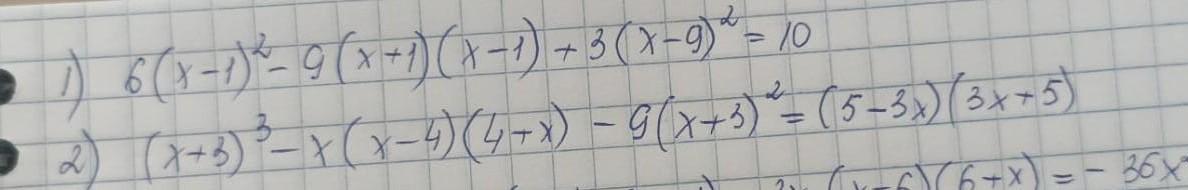 1) 6(x-1)² - 9(x+1)(x-1) + 3(x-9)² = 10
2) (x+3)³ - x(x-4)(4+x) - 9(x+3)² = (5-3x)(3x+5)
(x-6)(6+x) = - 36x